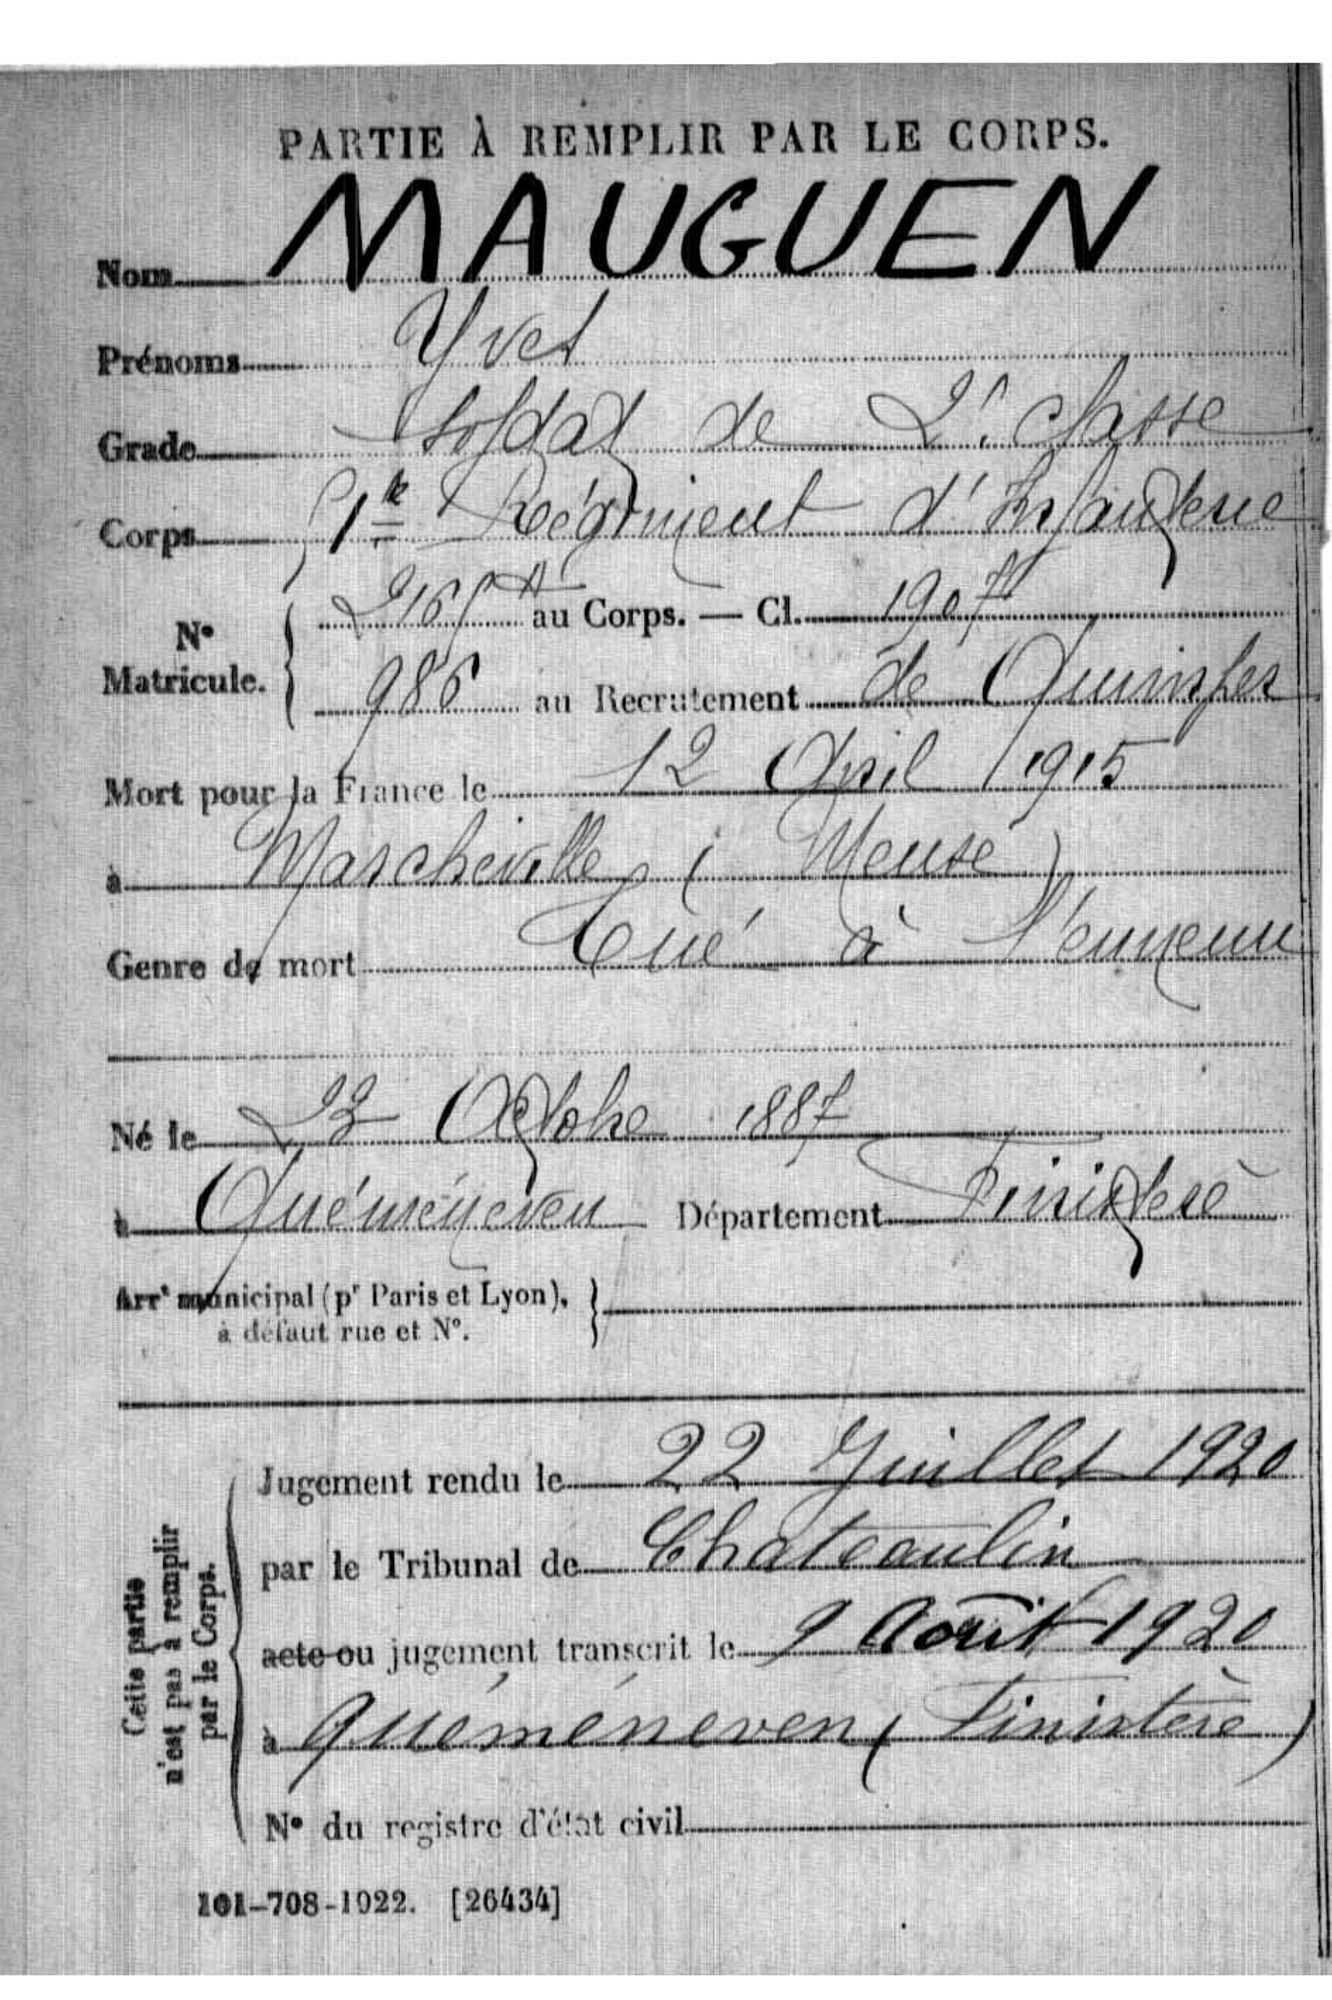 PARTIE À REMPLIR PAR LE CORPS.
Nom MAUGUEN
Prénoms Yves
Grade Soldat de 2e classe
Corps Régiment d'Infanterie
N° Matricule. au Corps. — Cl. 1907
986 au Recrutement de Quimper
Mort pour la France le 12 Avril 1915
à Marcheville (Meuse)
Genre de mort Tué à l'ennemi
Né le 23 Octobre 1887
à Quéménéven Département Finistère
Arrt municipal (pr Paris et Lyon),
à défaut rue et N°.
Cette partie
n'est pas à remplir
par le Corps.
Jugement rendu le 22 Juillet 1920
par le Tribunal de Chateaulin
acte ou jugement transcrit le 9 Août 1920
à Quéménéven (Finistère)
N° du registre d'état civil
101-708-1922. [26434]